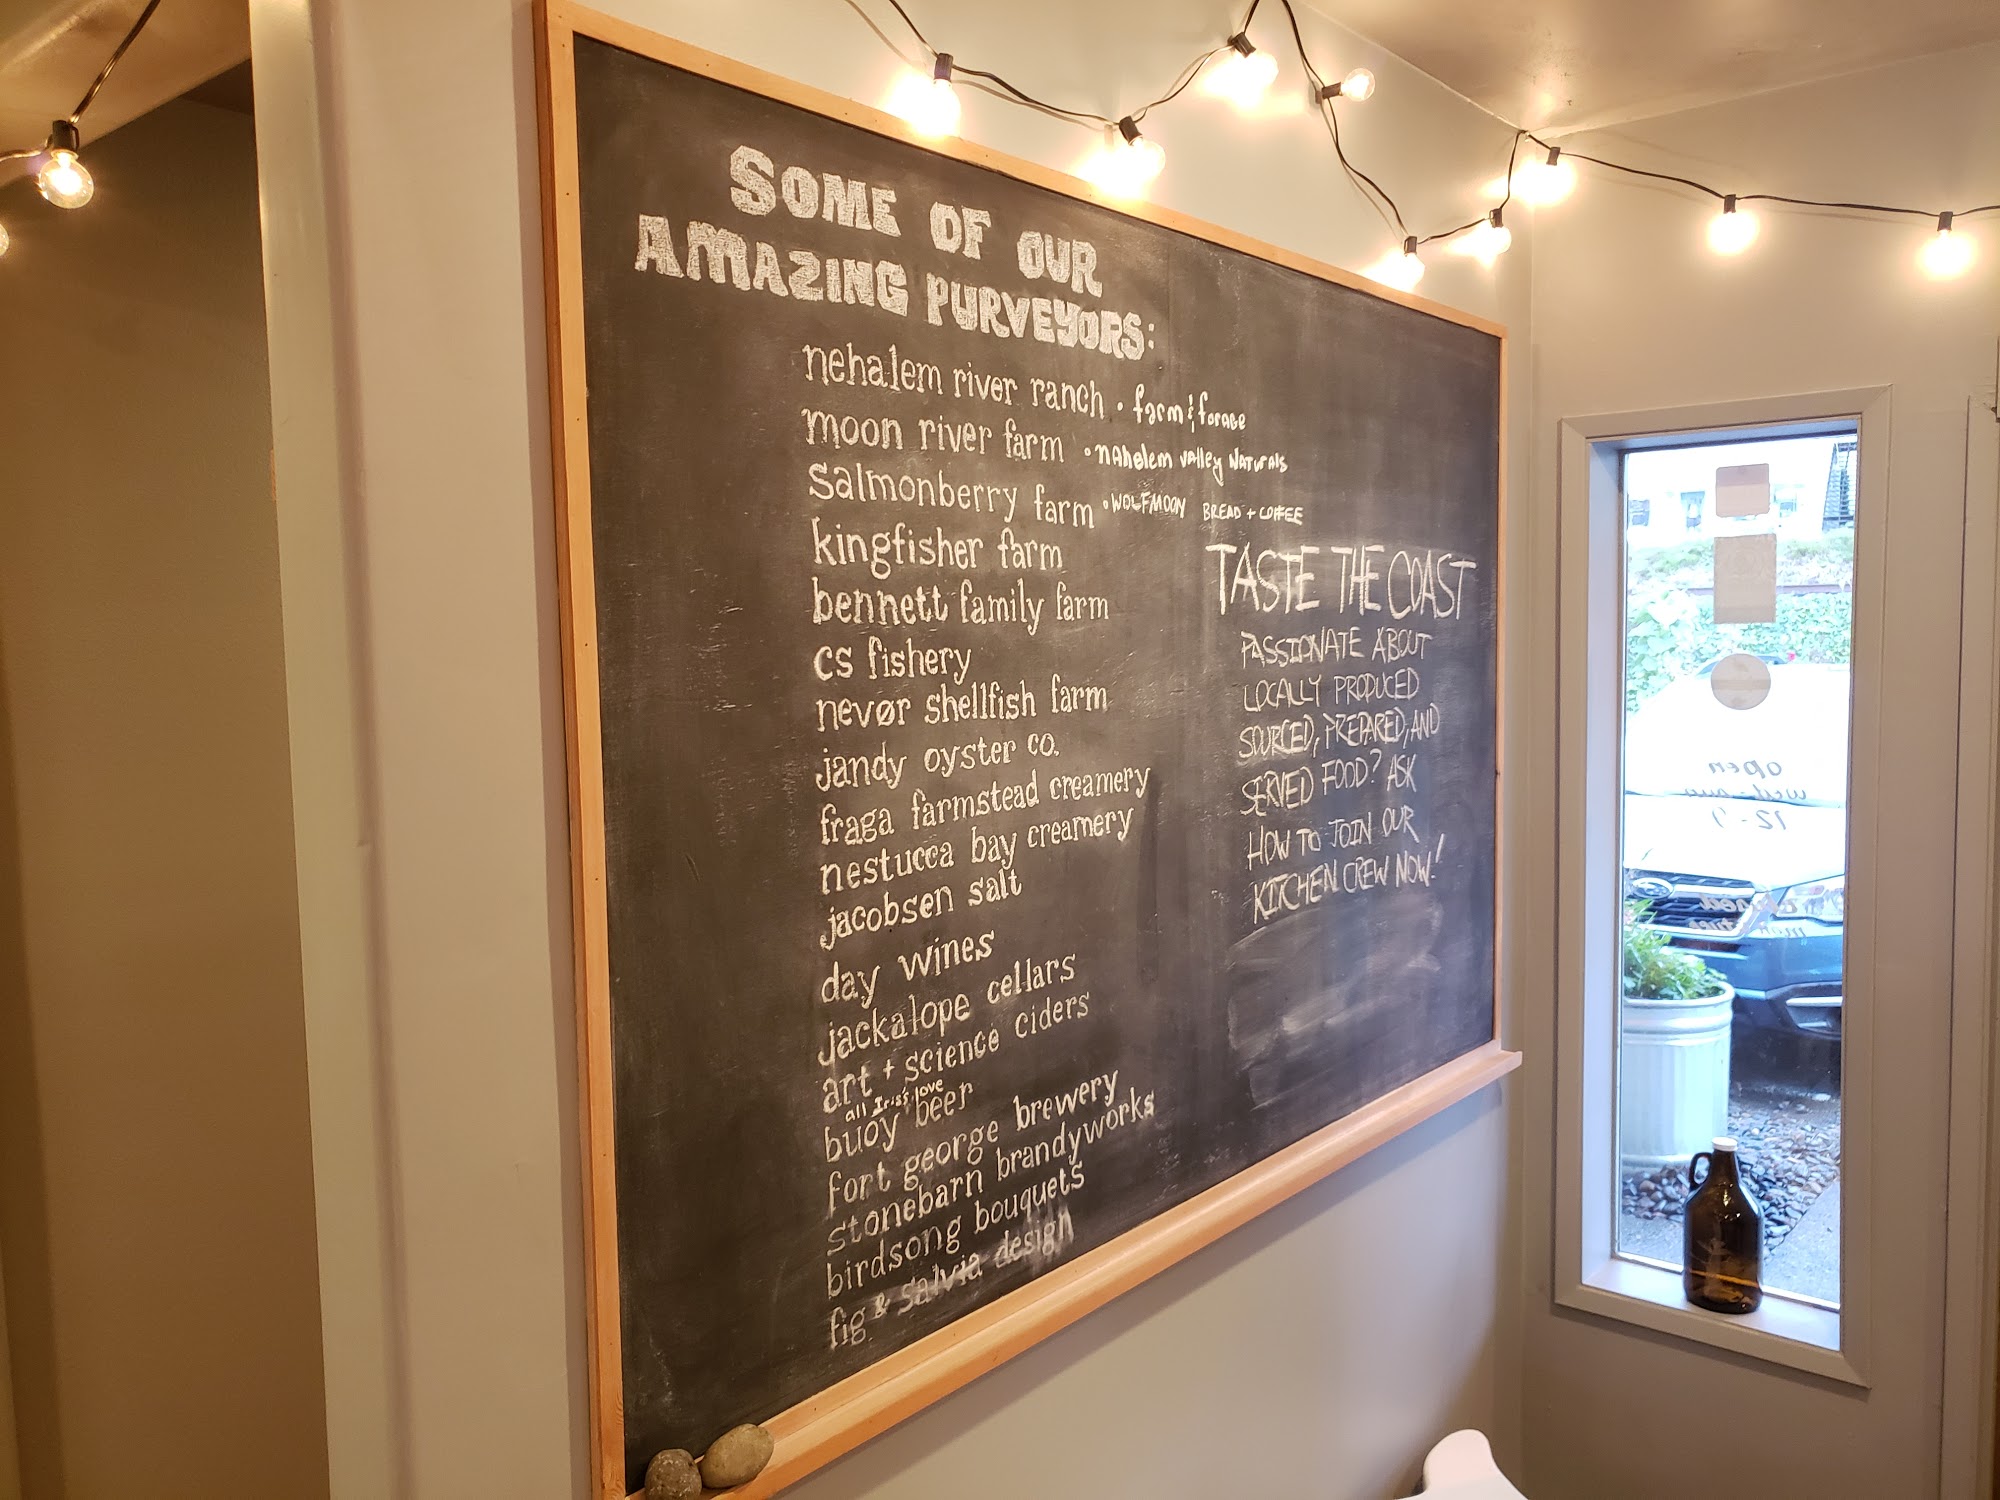 SOME OF OUR
AMAZING PURVEYORS:
nehalem river ranch • farm & forage
moon river farm • nahalem valley Naturals
salmonberry farm • WOLFMOON BREAD + COFFEE
kingfisher farm
bennett family farm
cs fishery
nevør shellfish farm
jandy oyster co.
fraga farmstead creamery
nestucca bay creamery
jacobsen salt
day wines
jackalope cellars
art + science ciders
all Iris's love
buoy beer
fort george brewery
stonebarn brandyworks
birdsong bouquets
fig & salvia design
TASTE THE COAST
PASSIONATE ABOUT
LOCALLY PRODUCED
SOURCED, PREPARED, AND
SERVED FOOD? ASK
HOW TO JOIN OUR
KITCHEN CREW NOW!
open
wed-sun
12-7
closed